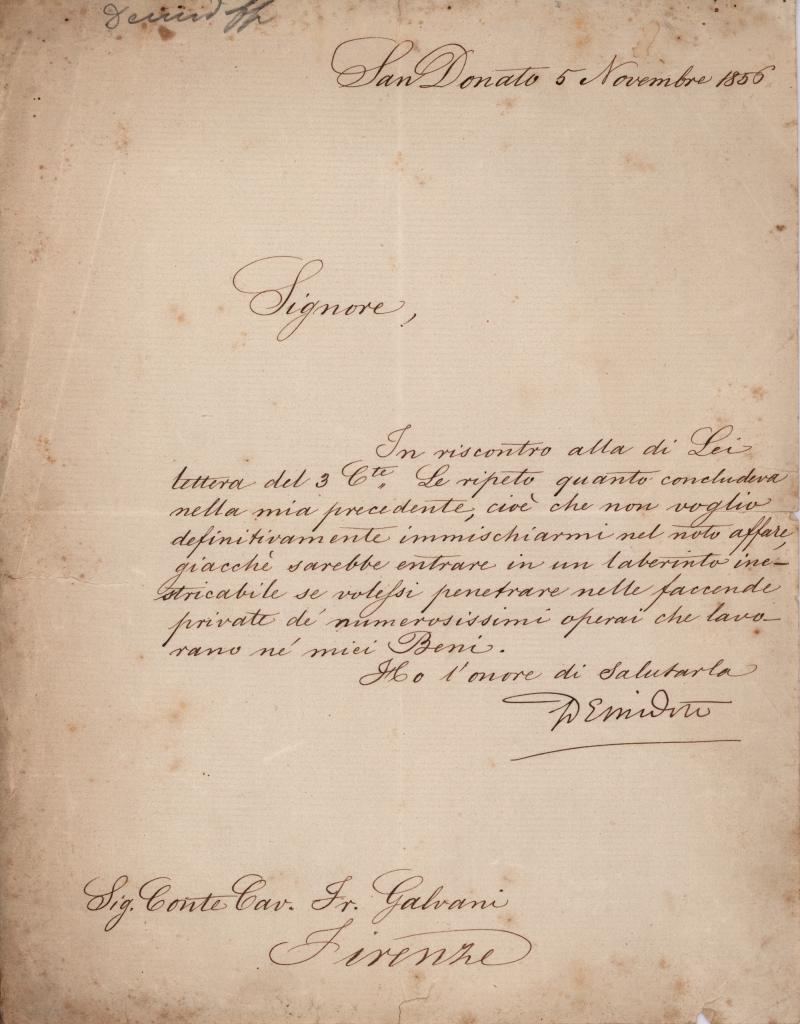 Demidoff
San Donato 5 Novembre 1856
Signore,
In riscontro alla di Lei
lettera del 3 Cte. Le ripeto quanto concludeva
nella mia precedente, cioè che non voglio
definitivamente immischiarmi nel noto affare,
giacchè sarebbe entrare in un laberinto ine-
stricabile se volessi penetrare nelle faccende
private de' numerosissimi operai che lavo-
rano ne' miei Beni.
Ho l'onore di salutarla
Demidoff
Sig. Conte Cav. Fr. Galvani
Firenze